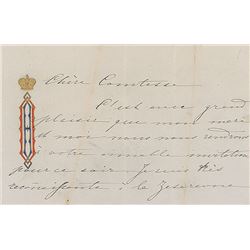 Chère Comtesse
C'est avec grand
plaisir que mon mari
et moi nous nous rendrons
à votre aimable invitation
pour ce soir Je suis très
reconnaissante à la